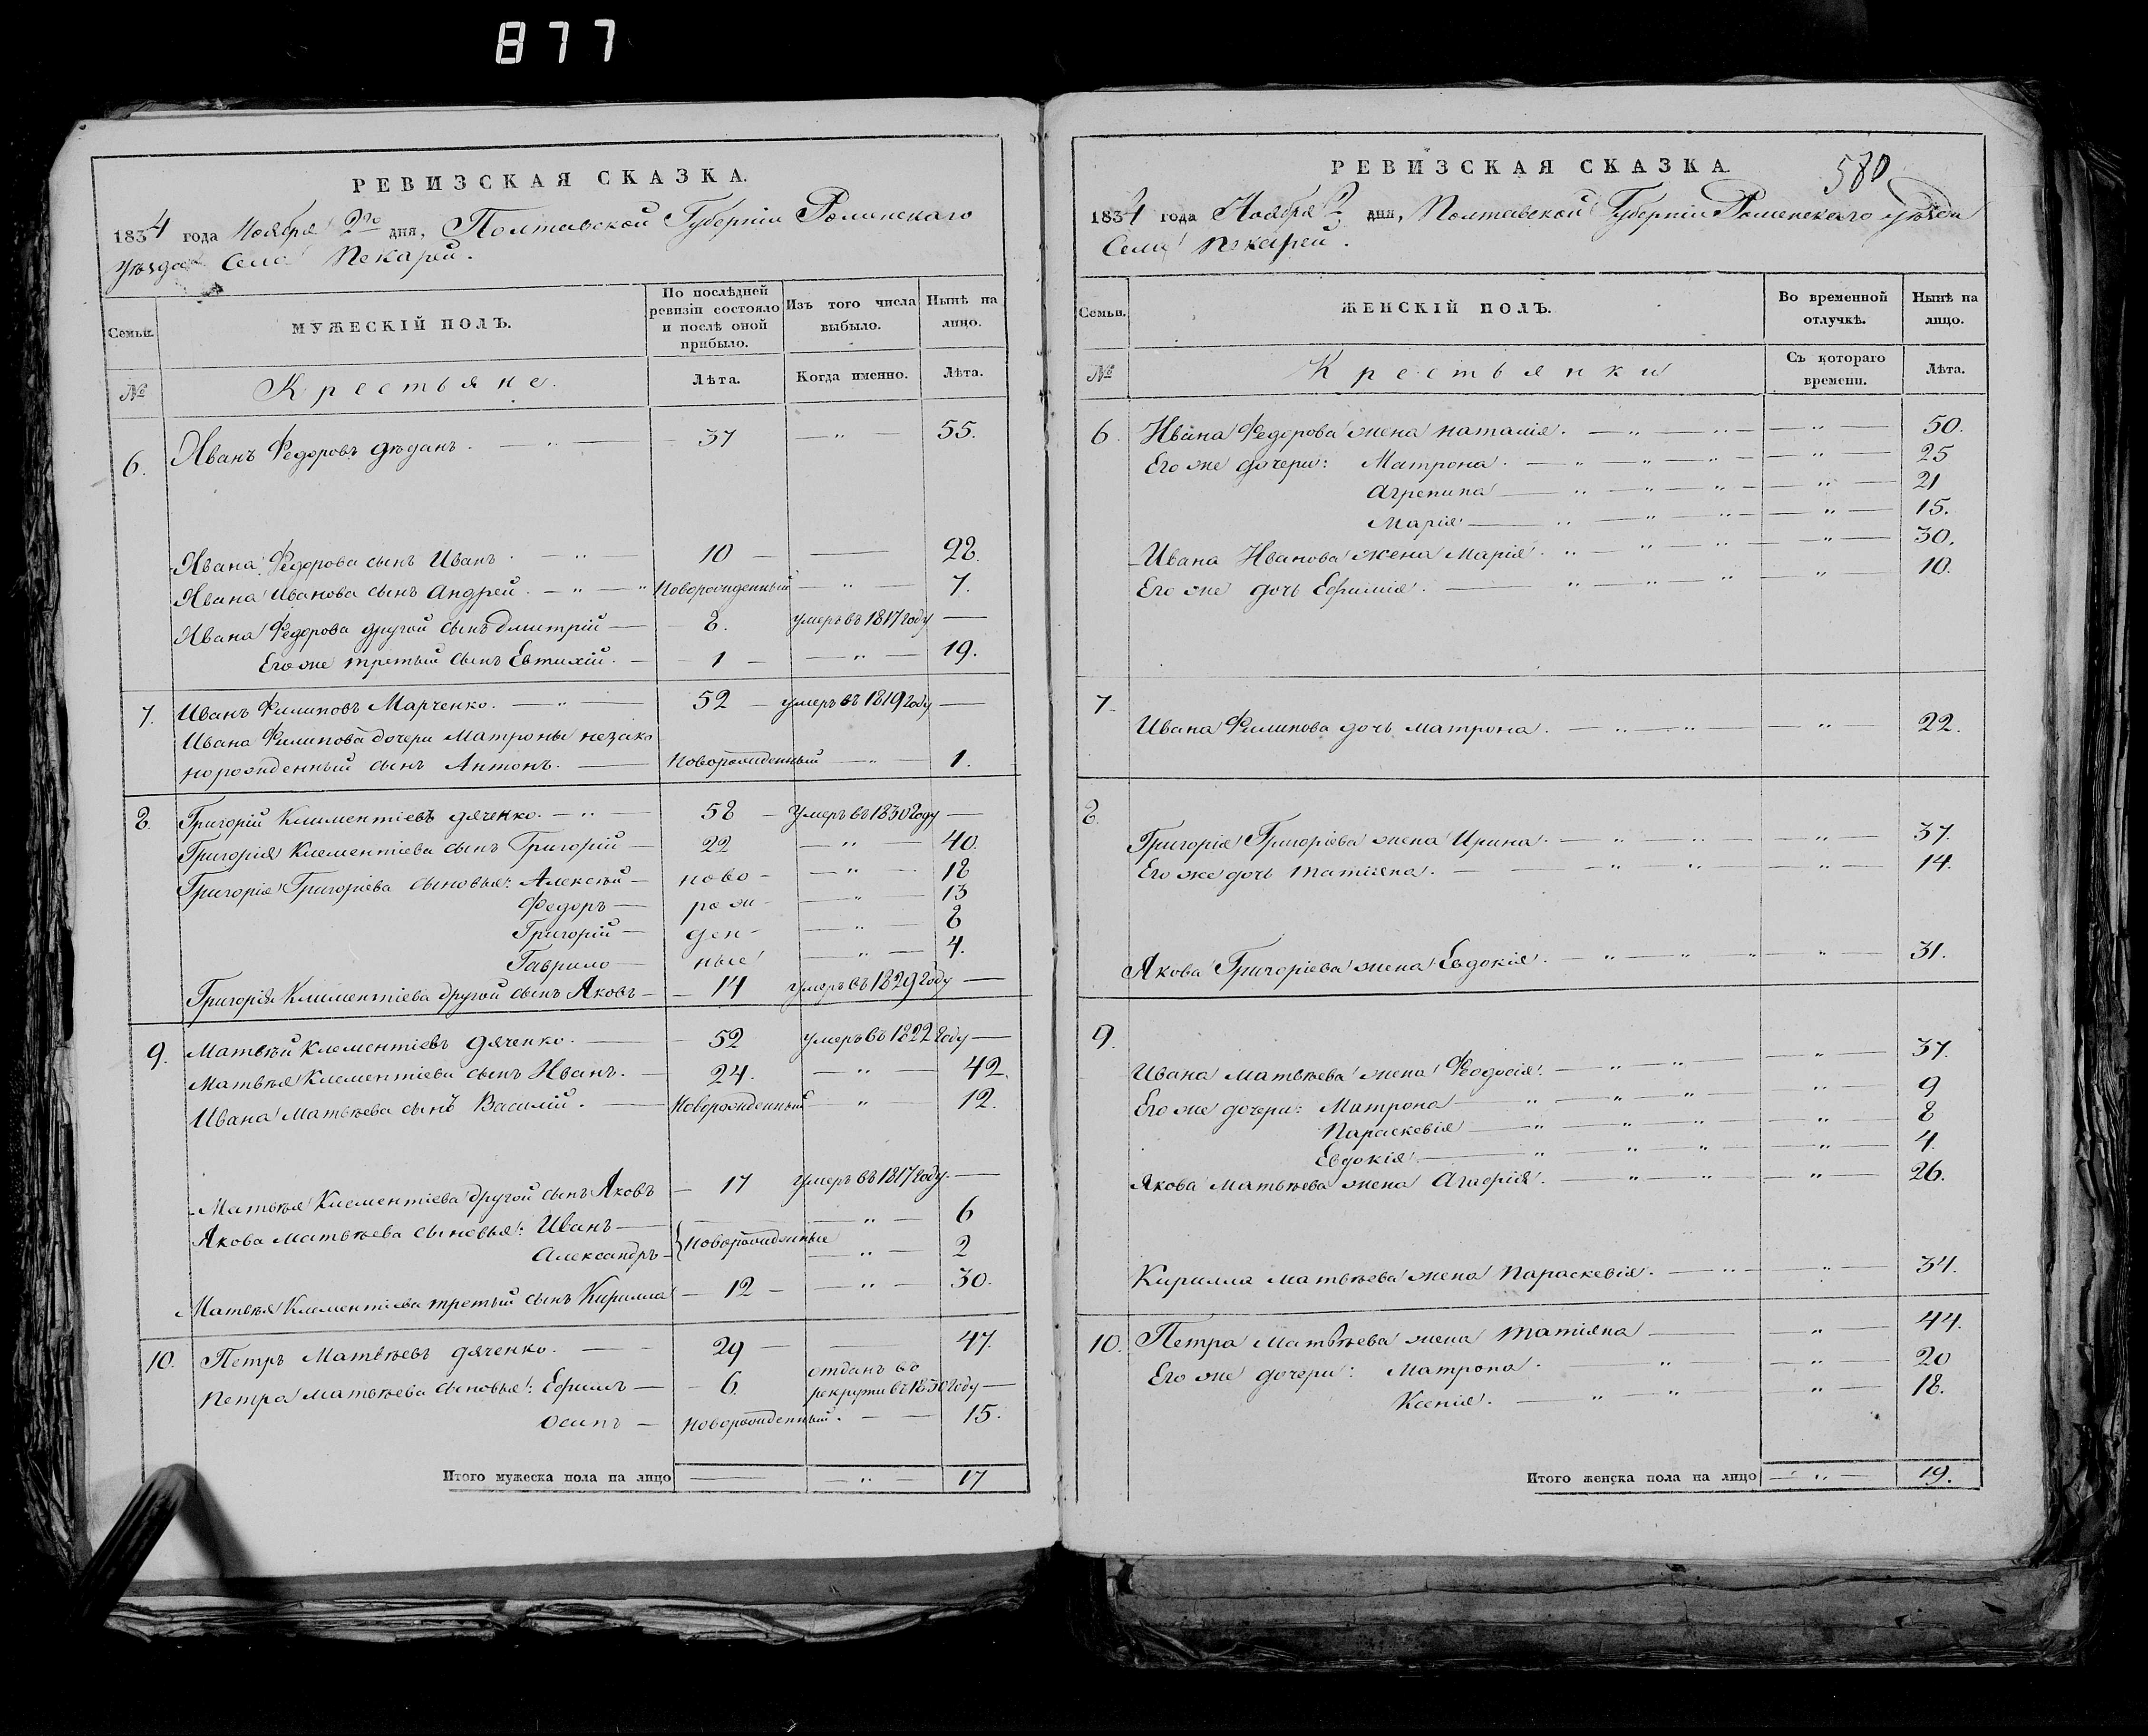 877
РЕВИЗСКАЯ СКАЗКА.
1834 года Ноября 2го дня, Полтавской Губерніи Роменскаго
уѣзда Села Пекарей.
Семьи.
МУЖЕСКІЙ ПОЛЪ.
По послѣдней ревизіи состояло и послѣ оной прибыло.
Изъ того числа выбыло.
Нынѣ на лицо.
№ Крестьяне. Лѣта. Когда именно. Лѣта.
6. Иванъ Федоровъ Дѣданъ. — " — 37 — " — 55.
Ивана Федорова сынъ Иванъ. — " — 10 — — 28.
Ивана Иванова сынъ Андрей. — " — " Новорожденный — " — 7.
Ивана Федорова другой сынъ Дмитрій — 8. умеръ въ 1817 году —
Его же третый сынъ Евтихій. — 1 — — " — 19.
7. Иванъ Филиповъ Марченко. — " — 52 — умеръ въ 1819 году —
Ивана Филипова дочери Матроны незако
норожденный сынъ Антонъ. — Новорожденный — " — 1.
8. Григорій Климентіевъ Дяченко. — " — 58 — Умеръ въ 1830 году —
Григорія Климентіева сынъ Григорій — 22 — " — 40.
Григорія Григоріева сыновья: Алексѣй — ново- — " — 18
Федоръ — рож- — " — 13
Григорій — ден- — " — 8
Гаврило — ные — " — 4.
Григорія Климентіева другой сынъ Яковъ — 14 умеръ въ 1829 году —
9. Матвѣй Климентіевъ Дяченко. — 52 умеръ въ 1822 году —
Матвѣя Климентіева сынъ Иванъ. — 24. — " — 42.
Ивана Матвѣева сынъ Василій. — Новорожденный — " — 12.
Матвѣя Климентіева другой сынъ Яковъ — 17 умеръ въ 1817 году. —
Якова Матвѣева сыновья: Иванъ — — " — 6
Александръ — { Новорожденные — " — 2
Матвѣя Климентіева третый сынъ Кирилла — 12 — — " — 30.
10. Петръ Матвѣевъ Дяченко. — 29 — — 47.
Петра Матвѣева сыновья: Ефимъ — 6. отданъ въ рекруты въ 1830 году —
Осипъ — Новорожденный. — — 15.
Итого мужеска пола на лицо — — " — 17
РЕВИЗСКАЯ СКАЗКА. 580
1834 года Ноября 2 дня, Полтавской Губерніи Роменскаго уѣзда
Села Пекарей.
Семьи.
ЖЕНСКІЙ ПОЛЪ.
Во временной отлучкѣ.
Нынѣ на лицо.
№ Крестьянки Съ котораго времени. Лѣта.
6. Ивана Федорова жена Наталія. — " — " — — " — 50.
Его же дочери: Матрона. — " — " — " — — " — 25
Агрепина — " — " — " — — " — 21
Марія — " — " — " — — " — 15.
Ивана Иванова жена Марія. " — " — " — — " — 30.
Его же дочь Ефимія. — " — " — " — " — 10.
7.
Ивана Филипова дочь Матрона. — " — " — — " — 22.
8.
Григорія Григоріева жена Ирина. — " — " — — " — 37.
Его же дочь Татіяна. — — " — " — — " — 14.
Якова Григоріева жена Евдокія. — " — " — " — " — 31.
9.
Ивана Матвѣева жена Феодосія. — " — " — — " — 37.
Его же дочери: Матрона — " — " — " — " — 9
Параскевія — " — " — " — " — 8
Евдокія. — " — " — " — " — 4.
Якова Матвѣева жена Агафія. — " — " — — " — 26.
Кирилла Матвѣева жена Параскевія. — " — — " — 34.
10. Петра Матвѣева жена Татіяна — — " — 44.
Его же дочери: Матрона. — " — — " — 20
Ксенія. — " — " — " — 18.
Итого женска пола на лицо — " — 19.